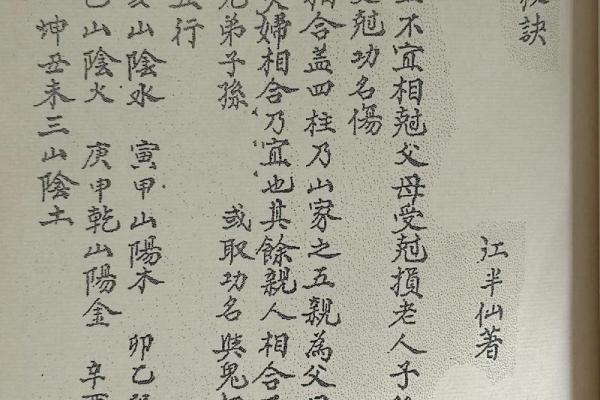 秘訣
江半仙著
不宜相尅父母受尅損老人子
尅功名傷
相合盖四柱乃山家之五親為父
婦相合乃宜也其餘親人相合
兄弟子孫 或取功名與鬼
五行
山陰水 寅甲山陽木 卯乙
巳山陰火 庚申乾山陽金 辛酉
坤丑未三山陰土